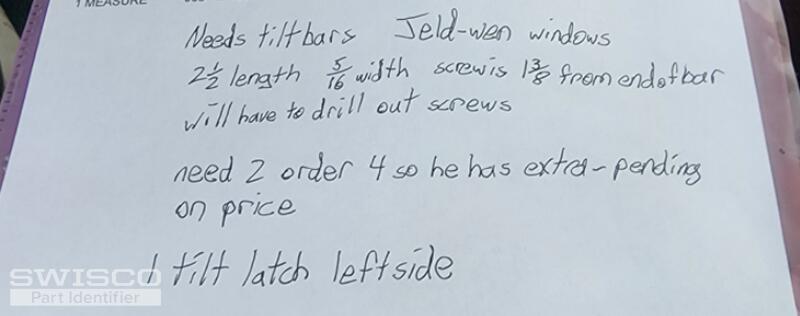 1 MEASURE
Needs tiltbars Jeld-wen windows
2 1/2 length 5/16 width screw is 1 3/8 from end of bar
will have to drill out screws
need 2 order 4 so he has extra - pending
on price
1 tilt latch left side
SWISCO
Part Identifier